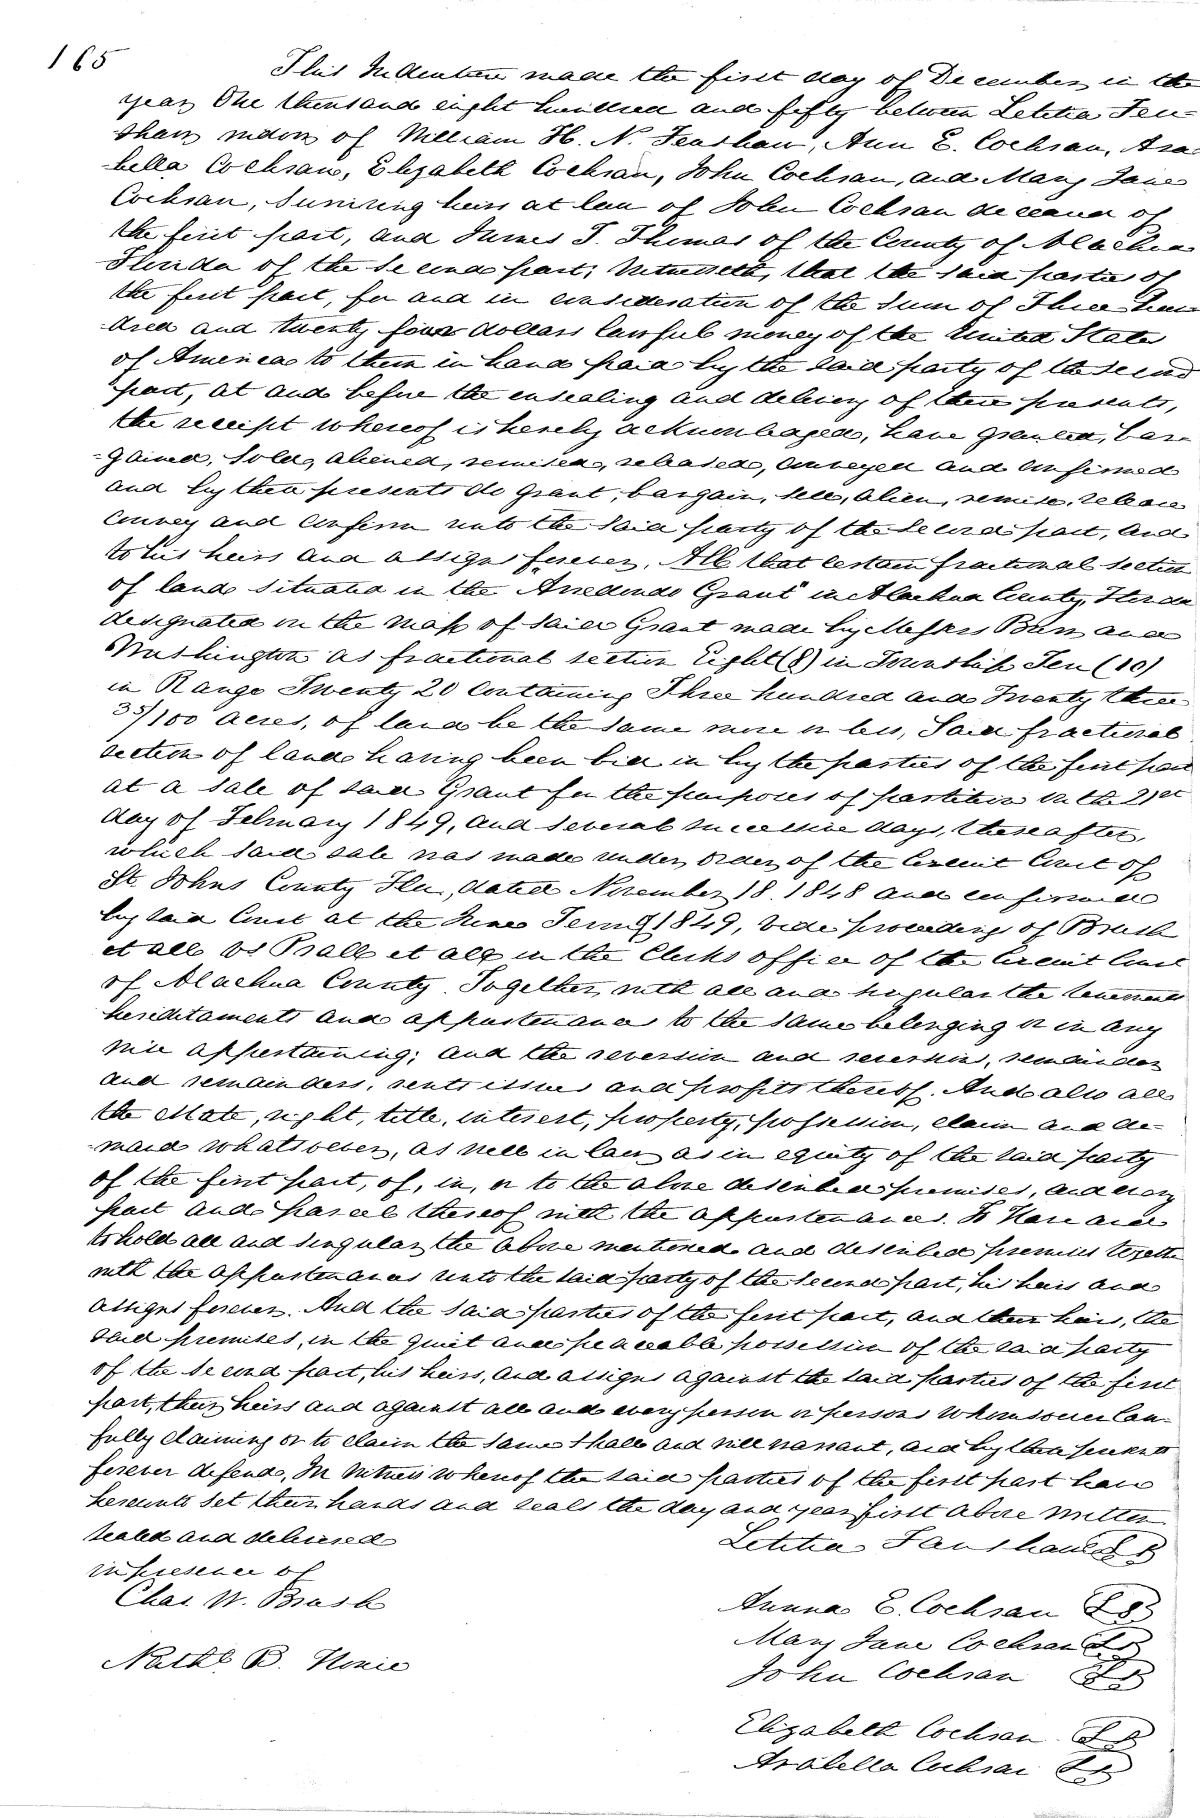 165
This Indenture made the first day of December in the
year One thousand eight hundred and fifty between Letitia Fen-
shaw widow of William H. N. Fenshaw, Ann E. Cochran, Ara-
-bella Cochran, Elizabeth Cochran, John Cochran, and Mary Jane
Cochran, surviving heirs at law of John Cochran deceased of
the first part, and James T. Thomas of the County of Alachua
Florida of the second part; Witnesseth, that the said parties of
the first part, for and in consideration of the sum of Three hun-
dred and twenty four dollars lawful money of the United States
of America to them in hand paid by the said party of the second
part, at and before the ensealing and delivery of these presents,
the receipt whereof is hereby acknowledged, have granted, bar-
-gained, sold, aliened, remised, released, conveyed and confirmed
and by these presents do grant, bargain, sell, alien, remise, release
convey and confirm unto the said party of the second part, and
to his heirs and assigns forever, All that certain fractional section
of land situated in the "Arredondo Grant" in Alachua County, Florida
designated on the map of said Grant made by Messrs Burr and
Washington as fractional section Eight (8) in Township Ten (10)
in Range Twenty 20 containing Three hundred and Twenty three
35/100 acres, of land be the same more or less, Said fractional
section of land having been bid in by the parties of the first part
at a sale of said Grant for the purposes of partition on the 21st
day of February 1849, and several successive days, thereafter,
which said sale was made under order of the Circuit Court of
St. Johns County Fla, dated November 18. 1848 and confirmed
by said Court at the June Term of 1849, vide proceedings of Brush
et all vs Hall et all in the Clerks office of the Circuit Court
of Alachua County. Together with all and singular the tenements
hereditaments and appurtenances to the same belonging or in any
wise appertaining; and the reversion and reversions, remainder
and remainders, rents issues and profits thereof. And also all
the estate, right, title, interest, property, possession, claim and de-
-mand whatsoever, as well in law as in equity of the said party
of the first part, of, in, or to the above described premises, and every
part and parcel thereof with the appurtenances. To Have and
to hold all and singular the above mentioned and described premises together
with the appurtenances unto the said party of the second part, his heirs and
assigns forever. And the said parties of the first part, and their heirs, the
said premises, in the quiet and peaceable possession of the said party
of the second part, his heirs, and assigns against the said parties of the first
part, their heirs and against all and every person or persons whomsoever law-
fully claiming or to claim the same shall and will warrant, and by these presents
forever defend, In witness whereof the said parties of the first part have
hereunto set their hands and seals the day and year first above written
sealed and delivered
in presence of
Chas. W. Brush
Nathl. B.
Letitia Fanshaw LS
Anna E. Cochran LS
Mary Jane Cochran LS
John Cochran LS
Elizabeth Cochran LS
Arabella Cochran LS